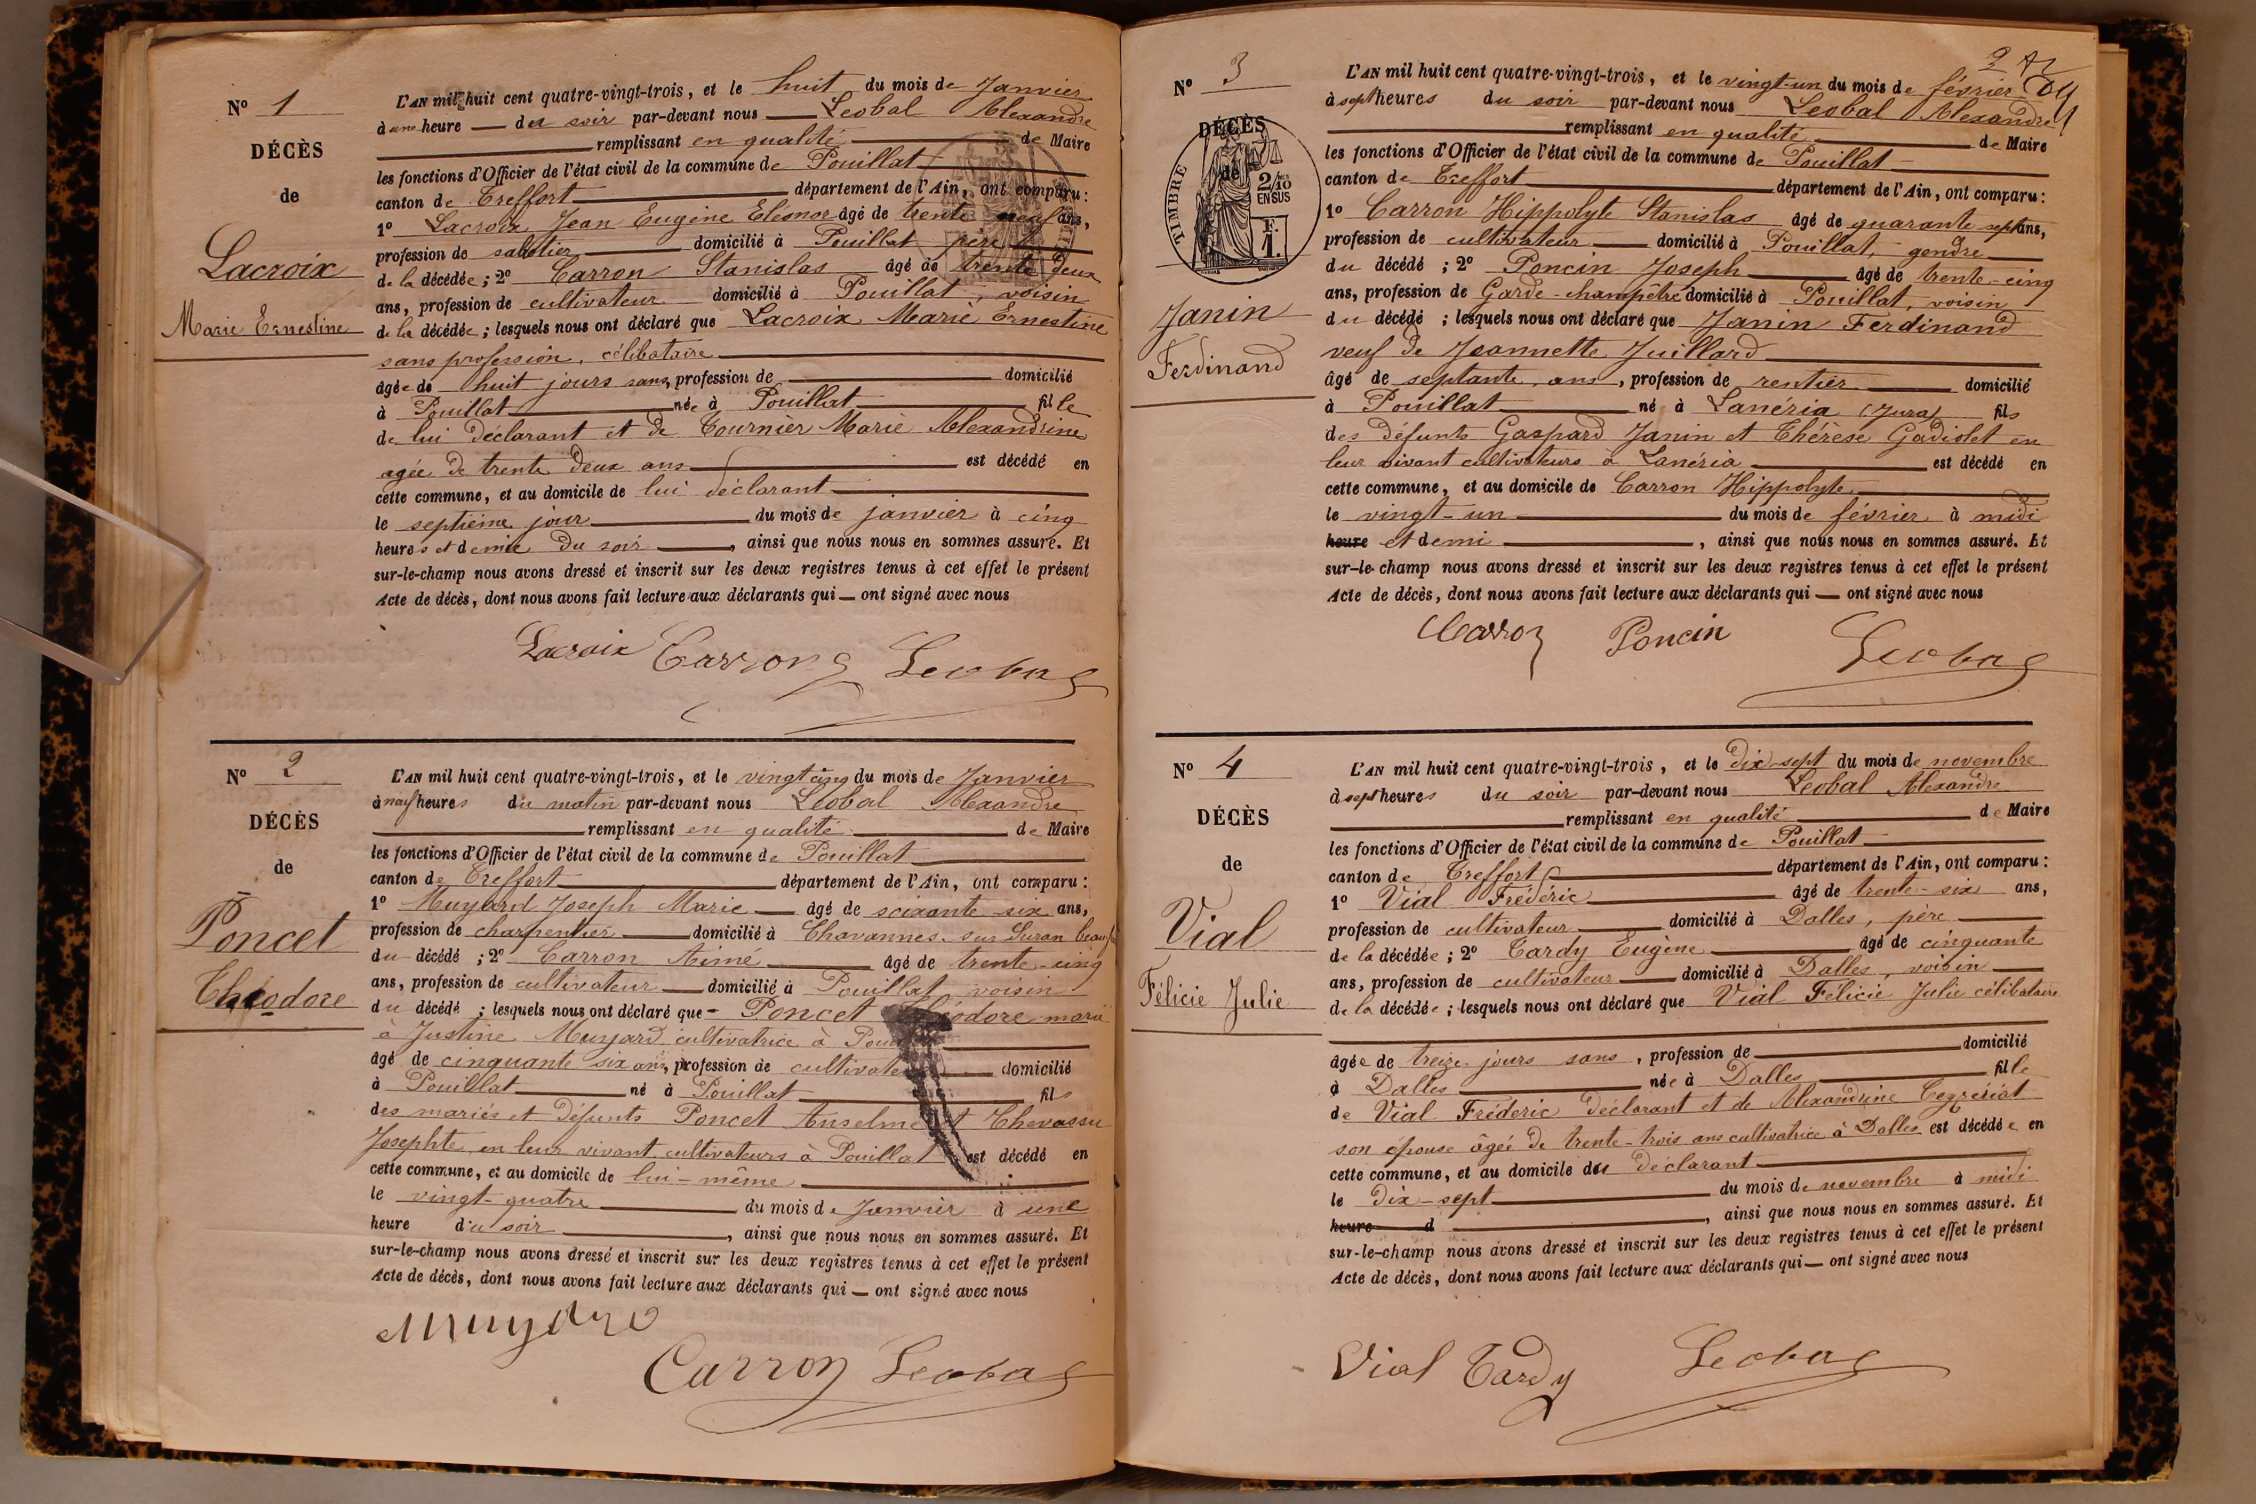 N° 1
DÉCÈS
de
Lacroix
Marie Ernestine
L'AN mil huit cent quatre-vingt-trois, et le huit du mois de Janvier
à une heure du soir par-devant nous Leobal Alexandre
remplissant en qualité de Maire
les fonctions d'Officier de l'état civil de la commune de Pouillat
canton de Treffort département de l'Ain, ont comparu :
1° Lacroix Jean Eugène Eléonor âgé de trente neuf ans,
profession de sabotier domicilié à Pouillat père
de la décédée ; 2° Carron Stanislas âgé de trente deux
ans, profession de cultivateur domicilié à Pouillat, voisin
de la décédée ; lesquels nous ont déclaré que Lacroix Marie Ernestine
sans profession, célibataire
âgée de huit jours sans, profession de domicilié
à Pouillat née à Pouillat fille
de lui déclarant et de Tournier Marie Alexandrine
agée de trente deux ans est décédé en
cette commune, et au domicile de lui déclarant
le septième jour du mois de janvier à cinq
heures et demie du soir, ainsi que nous nous en sommes assuré. Et
sur-le-champ nous avons dressé et inscrit sur les deux registres tenus à cet effet le présent
Acte de décès, dont nous avons fait lecture aux déclarants qui — ont signé avec nous
Lacroix Carron Leobal
N° 2
DÉCÈS
de
Poncet
Théodore
L'AN mil huit cent quatre-vingt-trois, et le vingt cinq du mois de Janvier
à neuf heures du matin par-devant nous Leobal Alexandre
remplissant en qualité de Maire
les fonctions d'Officier de l'état civil de la commune de Pouillat
canton de Treffort département de l'Ain, ont comparu :
1° Muyard Joseph Marie âgé de soixante six ans,
profession de charpentier domicilié à Chavannes-sur-Suran
du décédé ; 2° Carron Aimé âgé de trente-cinq
ans, profession de cultivateur domicilié à Pouillat voisin
du décédé ; lesquels nous ont déclaré que Poncet Théodore marié
à Justine Muyard cultivatrice à
âgé de cinquante six ans, profession de domicilié
à Pouillat né à Pouillat fils
des mariés et défunts Poncet Anselme et Chavassu
Josephte, en leur vivant cultivateurs à Pouillat est décédé en
cette commune, et au domicile de lui-même
le vingt-quatre du mois de Janvier à une
heure du soir, ainsi que nous nous en sommes assuré. Et
sur-le-champ nous avons dressé et inscrit sur les deux registres tenus à cet effet le présent
Acte de décès, dont nous avons fait lecture aux déclarants qui — ont signé avec nous
Muyard
Carron Leobal
2
N° 3
DÉCÈS
de
TIMBRE
2/10
EN SUS
F.
1.
Janin
Ferdinand
L'AN mil huit cent quatre-vingt-trois, et le vingt-un du mois de février
à sept heures du soir par-devant nous Leobal Alexandre
remplissant en qualité de Maire
les fonctions d'Officier de l'état civil de la commune de Pouillat
canton de Treffort département de l'Ain, ont comparu :
1° Carron Hippolyte Stanislas âgé de quarante sept ans,
profession de cultivateur domicilié à Pouillat, gendre
du décédé ; 2° Poncin Joseph âgé de trente-cinq
ans, profession de Garde-champêtre domicilié à Pouillat, voisin
du décédé ; lesquels nous ont déclaré que Janin Ferdinand
veuf de Jeannette Juillard
âgé de septante ans, profession de rentier domicilié
à Pouillat né à Lanéria (Jura) fils
des défunts Gaspard Janin et Thérèse Gadiolet en
leur vivant cultivateurs à Lanéria est décédé en
cette commune, et au domicile de Carron Hippolyte
le vingt-un du mois de février à midi
heure et demi, ainsi que nous nous en sommes assuré. Et
sur-le-champ nous avons dressé et inscrit sur les deux registres tenus à cet effet le présent
Acte de décès, dont nous avons fait lecture aux déclarants qui — ont signé avec nous
Carron Poncin Leobal
N° 4
DÉCÈS
de
Vial
Félicie Julie
L'AN mil huit cent quatre-vingt-trois, et le dix-sept du mois de novembre
à sept heures du soir par-devant nous Leobal Alexandre
remplissant en qualité de Maire
les fonctions d'Officier de l'état civil de la commune de Pouillat
canton de Treffort département de l'Ain, ont comparu :
1° Vial Frédéric âgé de trente-six ans,
profession de cultivateur domicilié à Dalles, père
de la décédée ; 2° Tardy Eugène âgé de cinquante
ans, profession de cultivateur domicilié à Dalles, voisin
de la décédée ; lesquels nous ont déclaré que Vial Félicie Julie célibataire
âgée de treize jours sans, profession de domicilié
à Dalles née à Dalles fille
de Vial Fréderic déclarant et de Alexandrine Cegzériat
son épouse âgée de trente-trois ans cultivatrice à Dalles est décédée en
cette commune, et au domicile du déclarant
le dix-sept du mois de novembre à midi
heure d, ainsi que nous nous en sommes assuré. Et
sur-le-champ nous avons dressé et inscrit sur les deux registres tenus à cet effet le présent
Acte de décès, dont nous avons fait lecture aux déclarants qui — ont signé avec nous
Vial Tardy Leobal